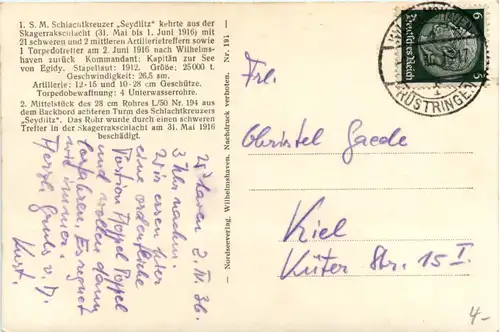 1. S. M. Schlachtkreuzer „Seydlitz" kehrte aus der
Skagerrakschlacht (31. Mai bis 1. Juni 1916) mit
21 schweren und 2 mittleren Artillerietreffern sowie
1 Torpedotreffer am 2. Juni 1916 nach Wilhelms-
haven zurück Kommandant: Kapitän zur See
von Egidy. Stapellauf: 1912. Größe: 25000 t.
Geschwindigkeit: 26,5 sm.
Artillerie: 12-15 und 10-28 cm Geschütze.
Torpedobewaffnung: 4 Unterwasserrohre.
2. Mittelstück des 28 cm Rohres L/50 Nr. 194 aus
dem Backbord achteren Turm des Schlachtkreuzers
„Seydlitz". Das Rohr wurde durch einen schweren
Treffer in der Skagerrakschlacht am 31. Mai 1916
beschädigt.
haven 2. IV. 36.
3 Uhr nachm.
Wir essen hier
eine ordentliche
Portion Hoppel Poppel
und wollen dann
losfahren. Es regnet
wie immer.
Herzl. Gruß v. D.
Kurt.
— Nordseeverlag, Wilhelmshaven. Nachdruck verboten. Nr. 191
6 6
Deutsches Reich
RÜSTRINGEN
Frl.
Christel Gaede
Kiel
Küter Str. 15 I.
4-